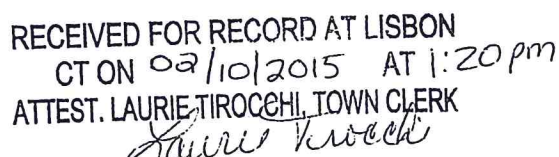 RECEIVED FOR RECORD AT LISBON
CT ON 02/10/2015 AT 1:20 pm
ATTEST. LAURIE TIROCCHI, TOWN CLERK
Laurie Tirocchi